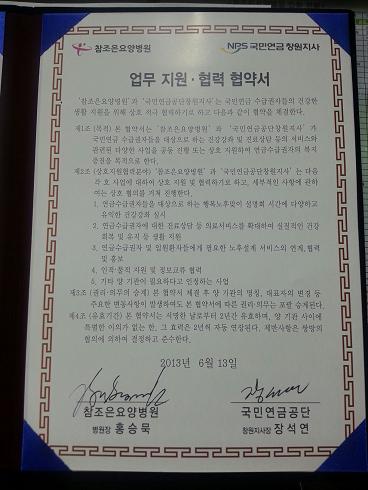 참조은요양병원 NPS 국민연금 창원지사
업무 지원·협력 협약서
'참조은요양병원'과 '국민연금공단창원지사'는 국민연금 수급권자들의 건강한
생활 지원을 위해 상호 적극 협력하기로 하고 다음과 같이 협약을 체결한다.
제1조 (목적) 본 협약서는 '참조은요양병원'과 '국민연금공단창원지사'가
국민연금 수급권자들을 대상으로 하는 건강강좌 및 진료상담 등의 서비스와
관련된 다양한 사업을 공동 진행 또는 상호 지원하여 연금수급권자의 복지
증진을 목적으로 한다.
제2조 (상호지원협력분야) '참조은요양병원'과 '국민연금공단창원지사'는 다음
각 호 사업에 대하여 상호 지원 및 협력하기로 하고, 세부적인 사항에 관하
여는 상호 협의를 거쳐 진행한다.
1. 연금수급권자들을 대상으로 하는 행복노후맞이 설명회 시간에 다양하고
유익한 건강강좌 실시
2. 연금수급권자에 대한 진료상담 등 의료서비스를 확대하여 실질적인 건강
회복 및 유지 등 생활 지원
3. 연금수급권자 및 입원환자들에게 필요한 노후설계 서비스의 연계, 협력
및 홍보
4. 인적·물적 지원 및 정보교류 협력
5. 기타 양 기관이 필요하다고 인정하는 사업
제3조 (권리·의무의 승계) 본 협약서 체결 후 양 기관의 명칭, 대표자의 변경 등
주요한 변동사항이 발생하여도 본 협약서에 따른 권리·의무는 포괄 승계된다.
제4조 (유효기간) 본 협약서는 서명한 날로부터 2년간 유효하며, 양 기관 사이에
특별한 이의가 없는 한, 그 효력은 2년씩 자동 연장된다. 제반사항은 쌍방의
협의에 의하여 결정하고 준수한다.
2013년 6월 13일
참조은요양병원 국민연금공단
병원장 홍승묵 창원지사장 장석연